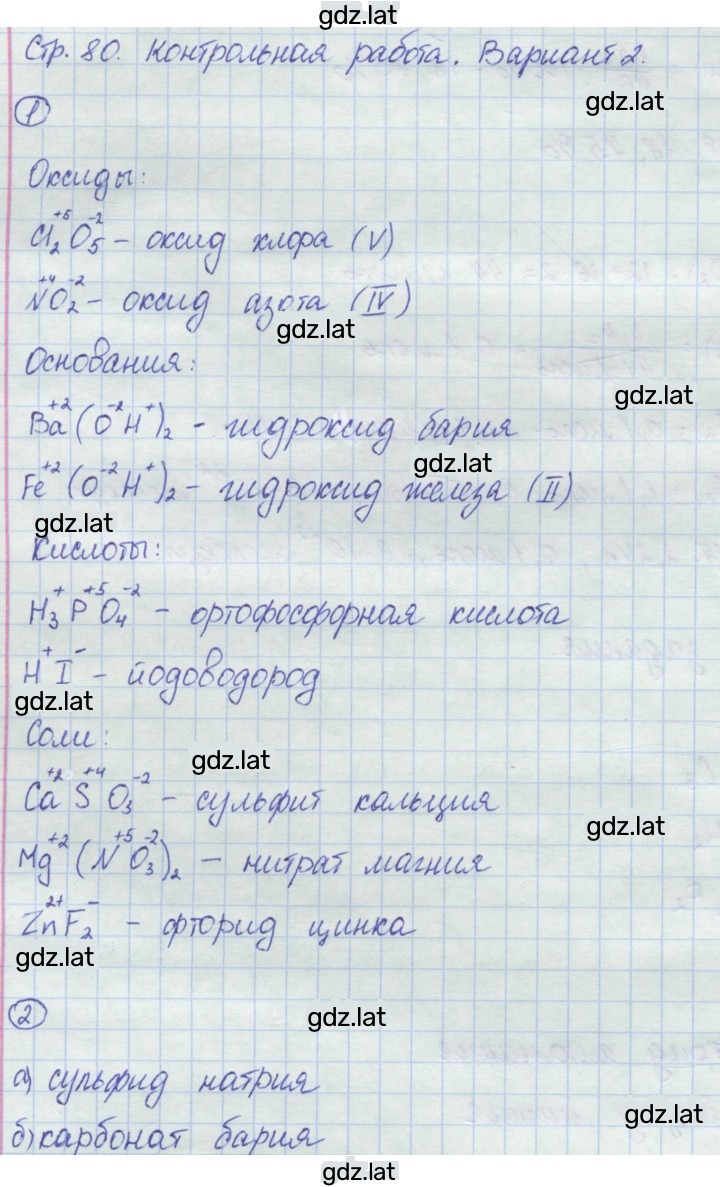 gdz.lat
Стр. 80. Контрольная работа. Вариант 2.
gdz.lat
1
Оксиды:
Cl₂⁺⁵O₅⁻² – оксид хлора (V)
N⁺⁴O₂⁻² – оксид азота (IV)
gdz.lat
Основания:
gdz.lat
Ba⁺²(O⁻²H⁺)₂ – гидроксид бария
gdz.lat
Fe⁺²(O⁻²H⁺)₂ – гидроксид железа (II)
gdz.lat
Кислоты:
H₃⁺P⁺⁵O₄⁻² – ортофосфорная кислота
H⁺I⁻ – йодоводород
gdz.lat
Соли:
gdz.lat
Ca⁺²S⁺⁴O₃⁻² – сульфит кальция
gdz.lat
Mg⁺²(N⁺⁵O₃⁻²)₂ – нитрат магния
Zn²⁺F₂⁻ – фторид цинка
gdz.lat
2
gdz.lat
а) сульфид натрия
gdz.lat
б) карбонат бария
gdz.lat